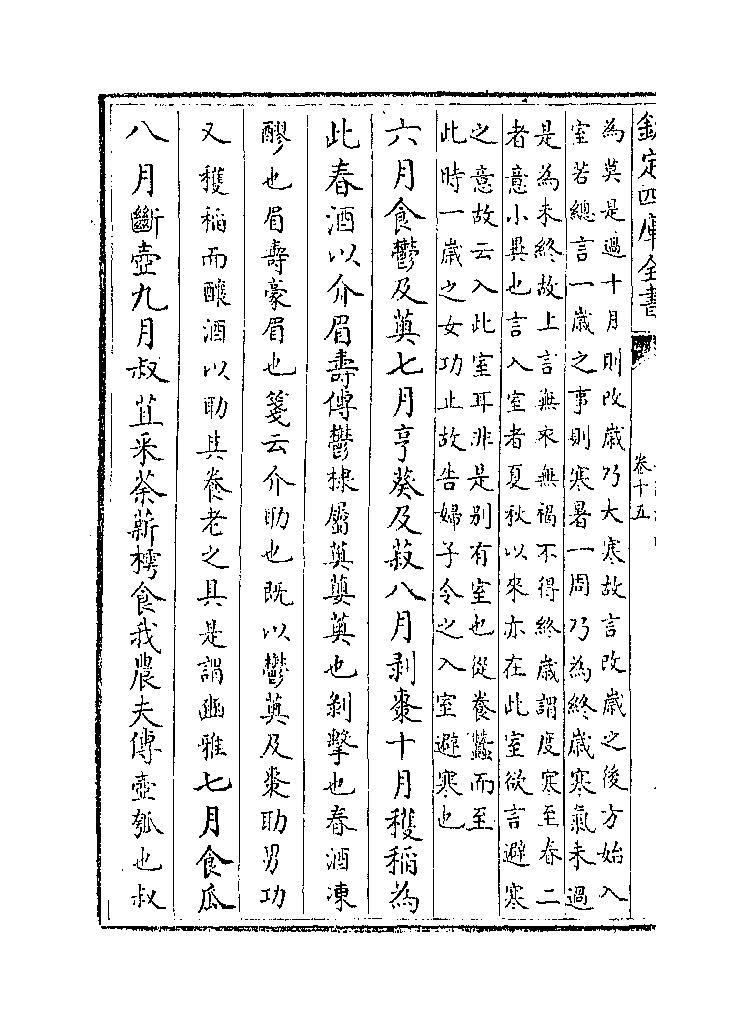 欽定四庫全書
卷十五
為莫是過十月則改歲乃大寒故言改歲之後方始入
室若總言一歲之事則寒暑一周乃為終歲寒氣未過
是為未終故上言無衣無褐不得終歲謂度寒至春二
者意小異也言入室者夏秋以來亦在此室欲言避寒
之意故云入此室耳非是别有室也從養蠶而至
此時一歲之女功止故告婦子令之入室避寒也
六月食鬱及薁七月亨葵及菽八月剥棗十月穫稻為
此春酒以介眉壽傳鬱棣屬薁蘡薁也剝擊也春酒凍
醪也眉壽豪眉也箋云介助也既以鬱薁及棗助男功
又穫稻而釀酒以助其養老之具是謂豳雅七月食瓜
八月斷壺九月叔苴采荼薪樗食我農夫傳壺瓠也叔